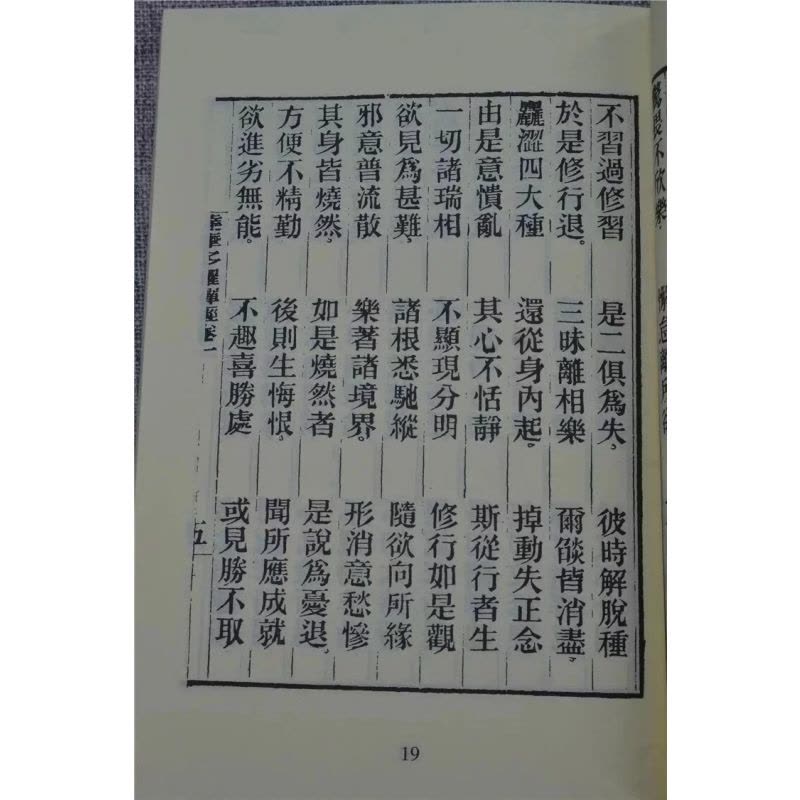 不習過修習　是二俱爲失。　彼時解脫種
於是修行退。　三昧離相樂　爾燄皆消盡。
麤澀四大種　還從身內起。　掉動失正念
由是意憒亂　其心不恬靜　斯從行者生
一切諸瑞相　不顯現分明　修行如是觀
欲見爲甚難。　諸根悉馳縱　隨欲向所緣
邪意普流散　樂著諸境界。　形消意愁慘
其身皆燒然。　如是燒然者　是說爲憂退。
方便不精勤　後則生悔恨。　聞所應成就
欲進劣無能。　不趣喜勝處　或見勝不取
五
19